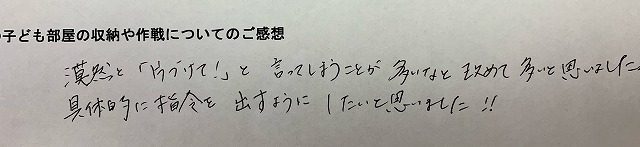 の子ども部屋の収納や作戦についてのご感想
漠然と「片づけて!」と言ってしまうことが多いなと改めて多いと思いました。
具体的に指令を出すようにしたいと思いました!!